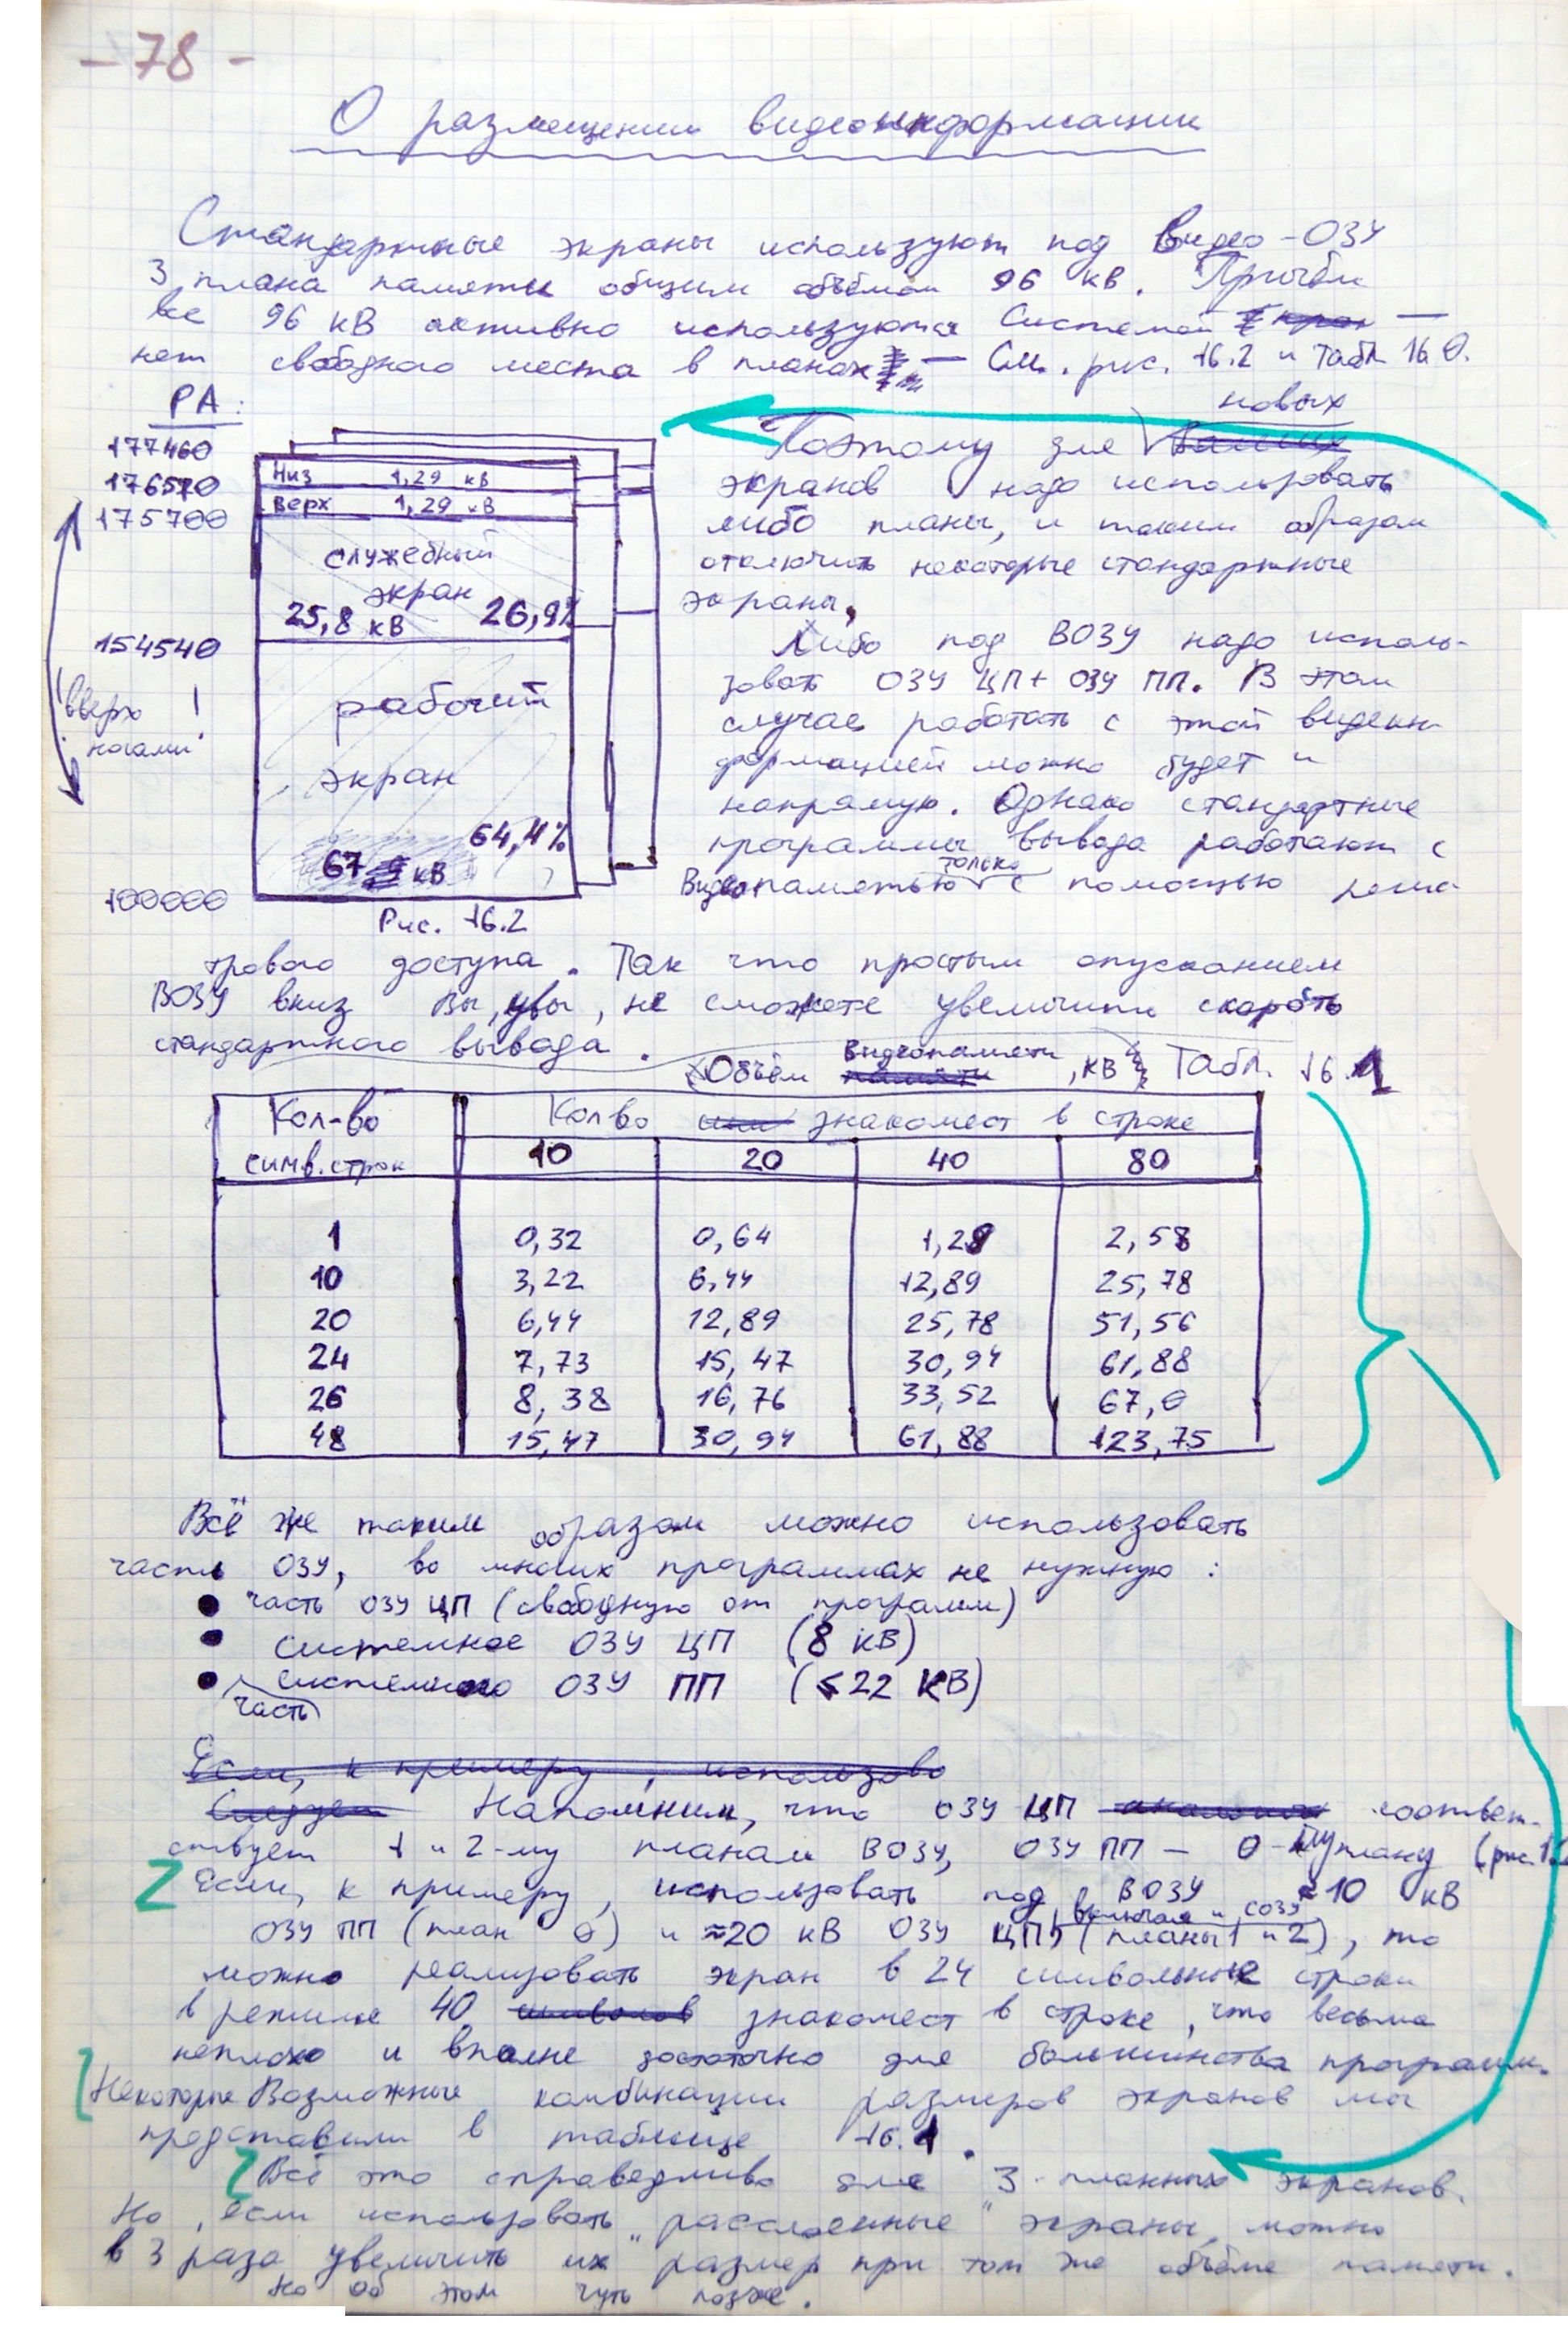 - 78 -
О размещении видеоинформации
Стандартные экраны используют под Видео-ОЗУ
3 плана памяти общим объёмом 96 кв. Причём
все 96 кВ активно используются Системой —
нет свободного места в планах — См. рис. 16.2 и Табл 16.0.
РА:
177460
176570
175700
154540
вверх ногами!
100000
Низ 1,29 кв
Верх 1,29 кв
служебный
экран
25,8 кв 26,9%
рабочий
экран
64,4%
67 кв
Рис. 16.2
Поэтому для новых
экранов надо использовать
либо планы, и таким образом
отключить некоторые стандартные
экраны.
Либо под ВОЗУ надо исполь-
зовать ОЗУ ЦП + ОЗУ ПП. В этом
случае работать с этой видеин-
формацией можно будет и
напрямую. Однако стандартные
программы вывода работают с
Видеопамятью только с помощью реги-
трового доступа. Так что простым опусканием
ВОЗУ вниз Вы, увы, не сможете увеличить скорость
стандартного вывода.
Объём видеопамяти, кв Табл. 16.1
Кол-во Кол во знакомест в строке
симв. строк 10 20 40 80
1 0,32 0,64 1,29 2,58
10 3,22 6,44 12,89 25,78
20 6,44 12,89 25,78 51,56
24 7,73 15,47 30,94 61,88
26 8,38 16,76 33,52 67,0
48 15,47 30,94 61,88 123,75
Всё же таким образом можно использовать
часть ОЗУ, во многих программах не нужную:
● часть ОЗУ ЦП (свободную от программ)
● системное ОЗУ ЦП (8 кв)
● часть системного ОЗУ ПП (≤22 кв)
Если, к примеру, использова
Следует Напомним, что ОЗУ ЦП соответ-
ствует 1 и 2-му планам ВОЗУ, ОЗУ ПП — 0-му плану (рис. 1
Если, к примеру, использовать под ВОЗУ ≈10 кВ
ОЗУ ПП (план 0) и ≈20 кВ ОЗУ ЦП, включая и СОЗУ (планы 1 и 2), то
можно реализовать экран в 24 символьные строки
в режиме 40 символов знакомест в строке, что весьма
неплохо и вполне достаточно для большинства программ.
Некоторые Возможные комбинации размеров экранов мы
представили в таблице 16.1.
Всё это справедливо для 3-планных экранов.
Но, если использовать „расслоенные" экраны, можно
в 3 раза увеличить их размер при том же объёме памяти.
Но об этом чуть позже.